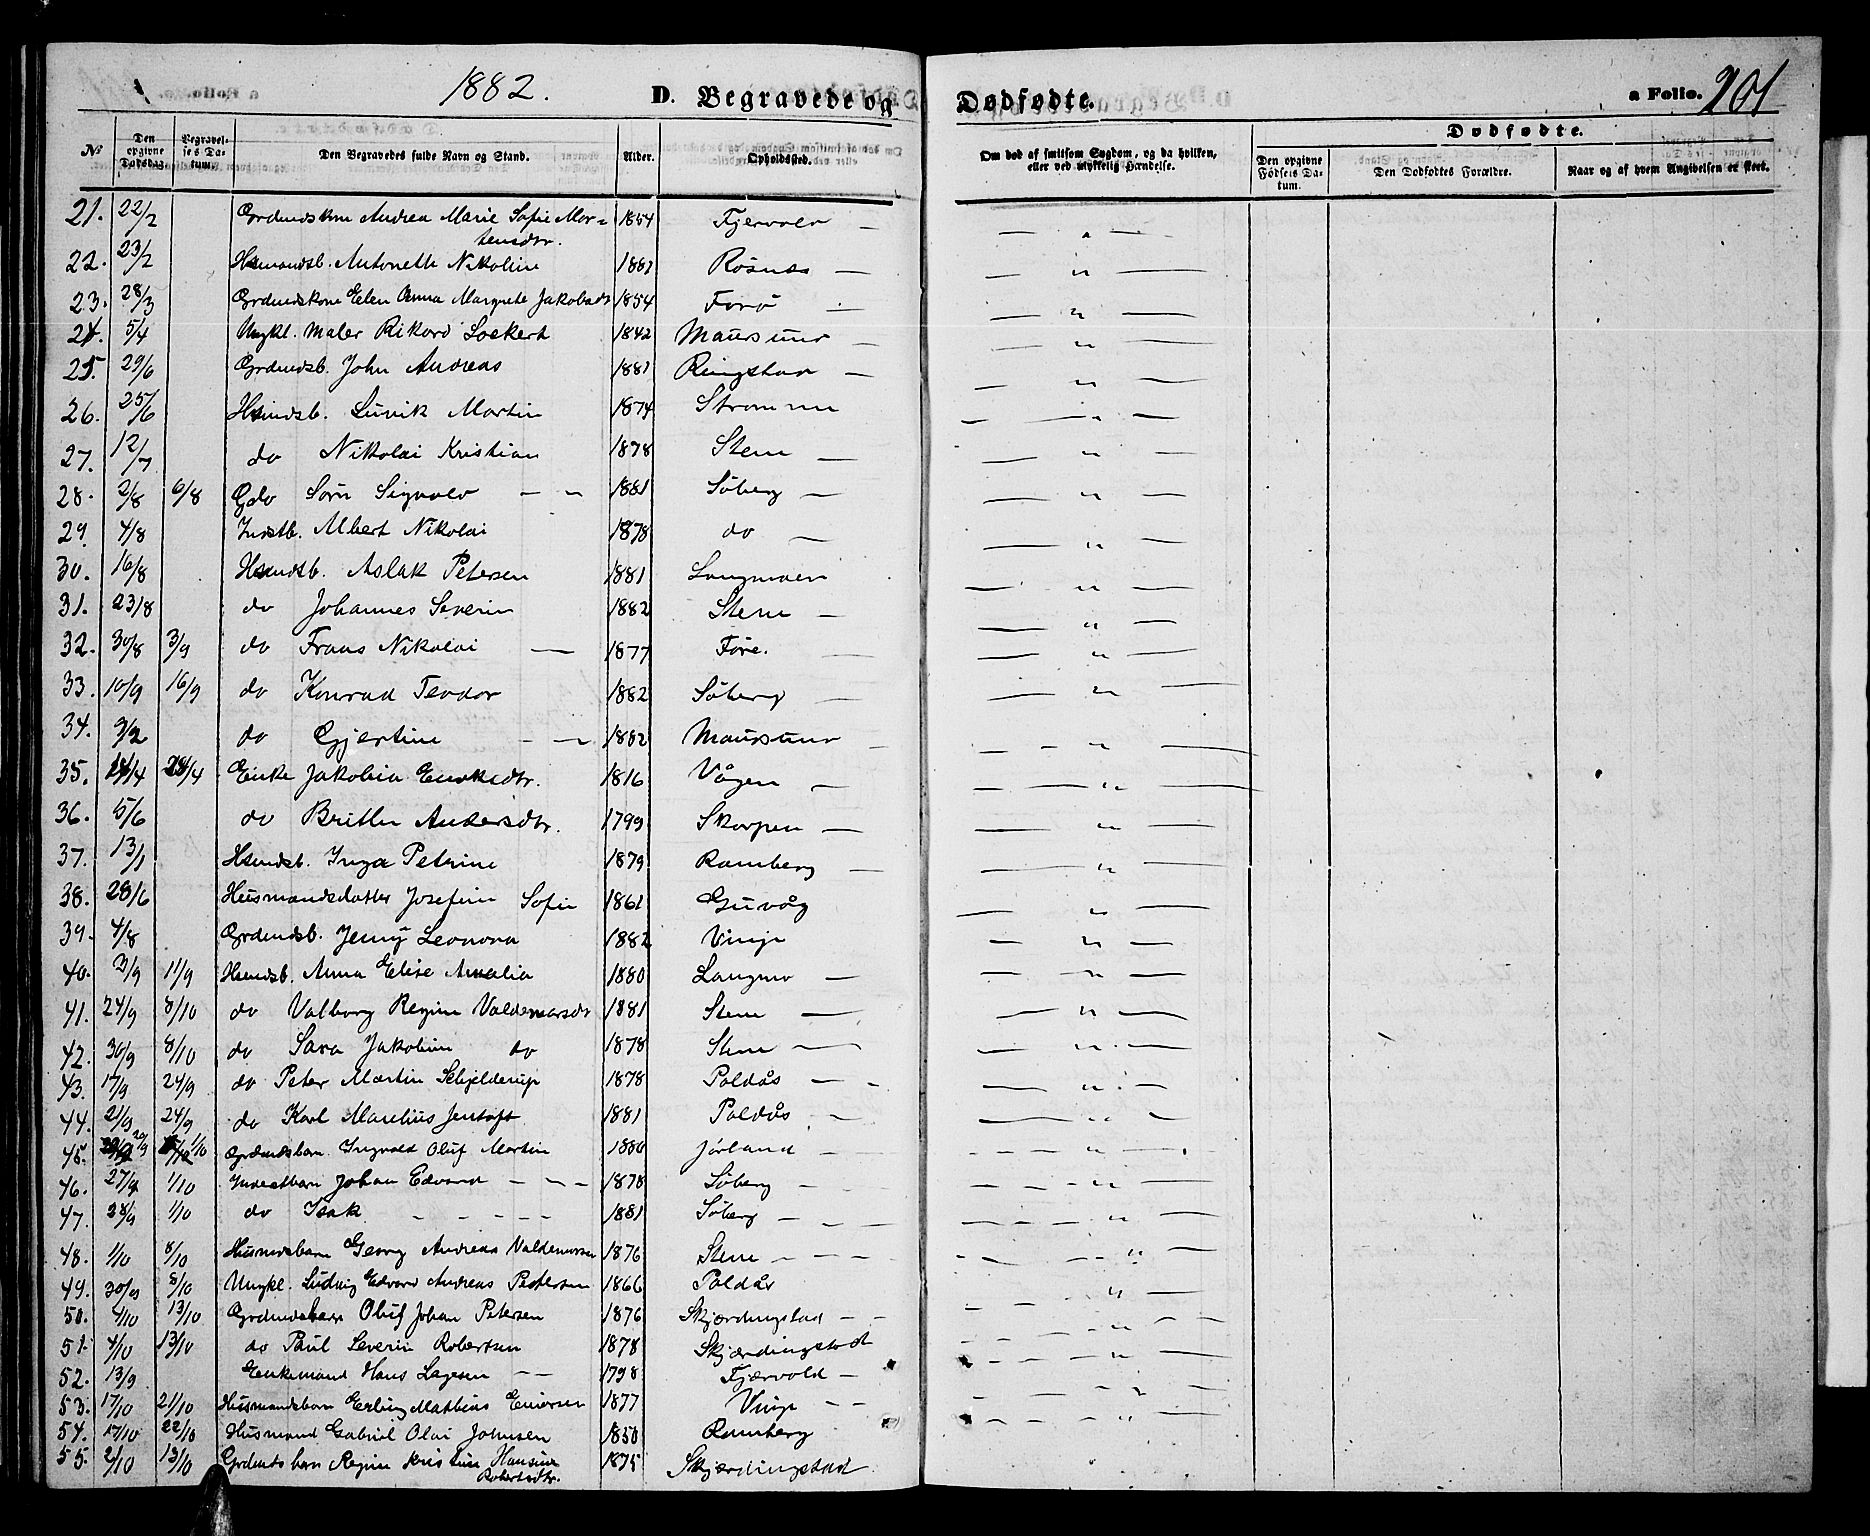 1882. D. Begravede og Dødfødte. a Folio. 201
a Folio.
No Den opgivne Dødsdag. Begravelses Datum. Den Begravedes fulde Navn og Stand. Alder. Opholdssted. Om død af smitsom Sygdom, og da hvilken, eller ved ulykkelig Hændelse. Dødfødte.
Den opgivne Fødsels Datum. Den Dødfødtes Forældre. Naar og af hvem Angivelsen er skeet.
21. 22/2 Grdmdskone Andrea Marie Sofie Mor= 1854 Fjervold — — " —
tensdtr.
22. 23/2 Antonette Nikoline 1881 Rösnes — — " —
23. 28/3 Grdmdskone Elen Anna Margrete Jakobsdt 1854 Forö — — " —
24. 5/4 Ungkl. Maler Rikard Lockert 1842 Maursund — — " —
25. 29/6 Grdmdsb. John Andreas 1881 Ringstad — — " —
26. 25/6 Luvik Martin 1874 Strömme — " —
27. 12/7 do Nikolai Kristian 1878 Stene — — " —
28. 2/8 6/8 Gdo Sörn Sigvald — — 1881 Söberg — — " —
29. 4/8 Indstb. Albert Nikolai 1878 do — — " —
30. 16/8 Hsmdsb. Aslak Petersen 1881 Langmoen — " —
31. 23/8 do Johannes Severin 1882 Stene — — " —
32. 30/8 3/9 do Frans Nikolai — 1877 Före. — — " —
33. 10/9 16/9 do Konrad Teodor 1882 Söberg — — " —
34. 9/2 do Gjertine — — 1882 Maursund — — — " —
35. /4 /4 Enke Jakobia Enoksdtr. 1816 Vågen — — " —
36. 5/6 do Brithe Andersdtr. 1799 Skorpen — — " —
37. 13/1 Hsmdsb. Inga Petrine 1879 Ramberg — — " —
38. 28/6 Husmandsdatter Josefine Sofie 1861 Guvåg — " —
39. 4/8 Grdmdsb. Jenny Leonora 1882 Vinje — " —
40. 3/9 11/9 Hsmdsb. Anna Elise Amalia 1880 Langmo — — " —
41. 24/9 8/10 do Valborg Regine Valdemarsdt 1881 Stene — — " —
42. 30/9 8/10 do Sara Jakobine do 1878 Stene — — — " —
43. 17/9 24/9 do Peter Martin Schjelderup 1878 Poldås — — — " —
44. 21/9 24/9 do Karl Marelius Jentoft 1881 Poldås — — " —
45. 20/9 1/10 Grdmdsbarn Ingvald Oluf Martin 1880 Jörland — — " —
46. 27/9 1/10 Inderstbarn Johan Edvard — — — 1878 Söberg — — — — — " —
47. 28/9 1/10 do Isak — — — — — 1881 Söberg — — — — — — " —
48. 1/10 8/10 Husmdsbarn Georg Andreas Valdemarsen 1876 Stene — — — — — — "
49. 30/9 8/10 Ungkl. Ludvig Edvard Andreas Pedersen 1866 Poldås — — — " —
50. 4/10 13/10 Grdmdsbarn Oluf Johan Petersen 1876 Skjærdingstad — — — — — "
51. 4/10 13/10 do Paul Severin Robertsen 1878 Skjærdingstad — — — " —
52. 13/9 Enkemand Hans Lagesen — — 1798 Fjærvold — — — — " —
53. 17/10 21/10 Husmandsbarn Erling Mathias Enersen 1877 Vinje — — — — — " —
54. 17/10 22/10 Husmand Gabriel Olai Johnsen 1850 Ramberg — — — "
55. 2/10 13/10 Grdmdsbarn Regine Kristine Hansine 1875 Skjærdingstad
Robertsdtr.